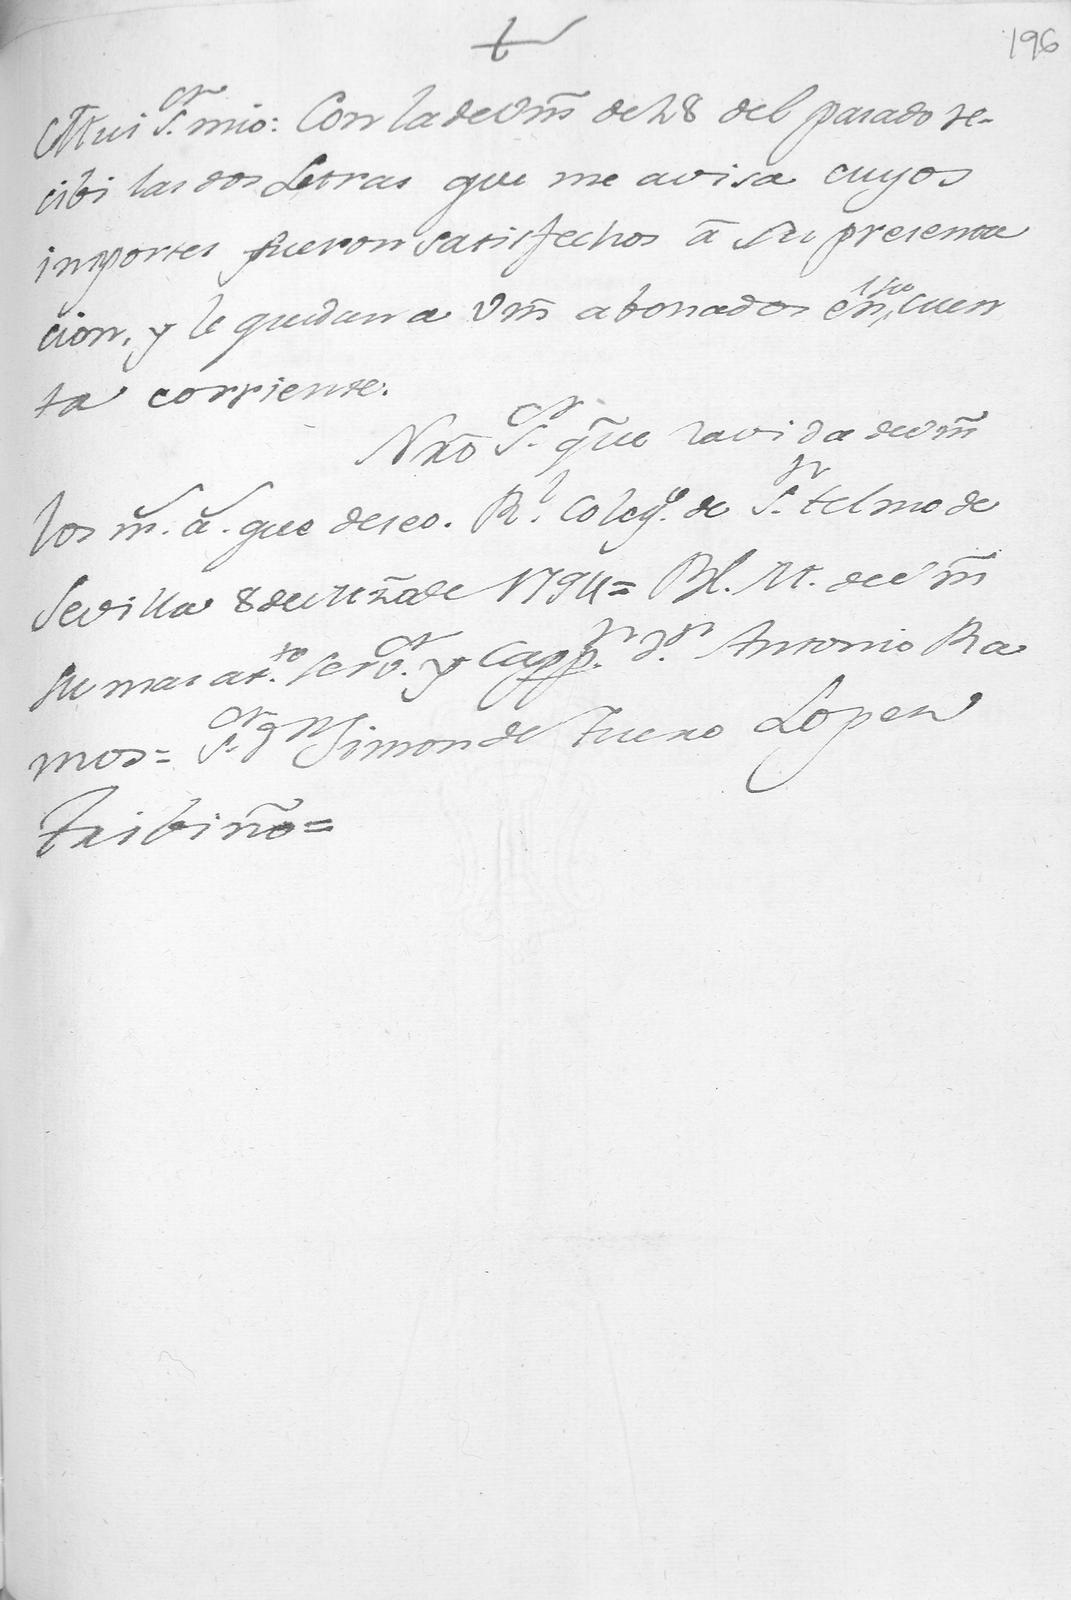 196
Mui S.or mio: Con la de Vm̃ de 28 del pasado re-
cibi las dos Letras que me avisa cuyos
importes fueron satisfechos â su presenta
cion, y le quedan a Vm̃ abonados en su cuen
ta corriente.
Nrõ S.or gũe la vida de Vm̃
los m.s a.s que deseo. R.l Coleg.o de S.n telmo de
Sevilla 8 de de 1794 = Bl. M. de Vm̃
su mas at.to serv.or y Capp.n D.n Antonio Ra
mos = S.or Dn Simon de tueno Lopez
Tribiño =